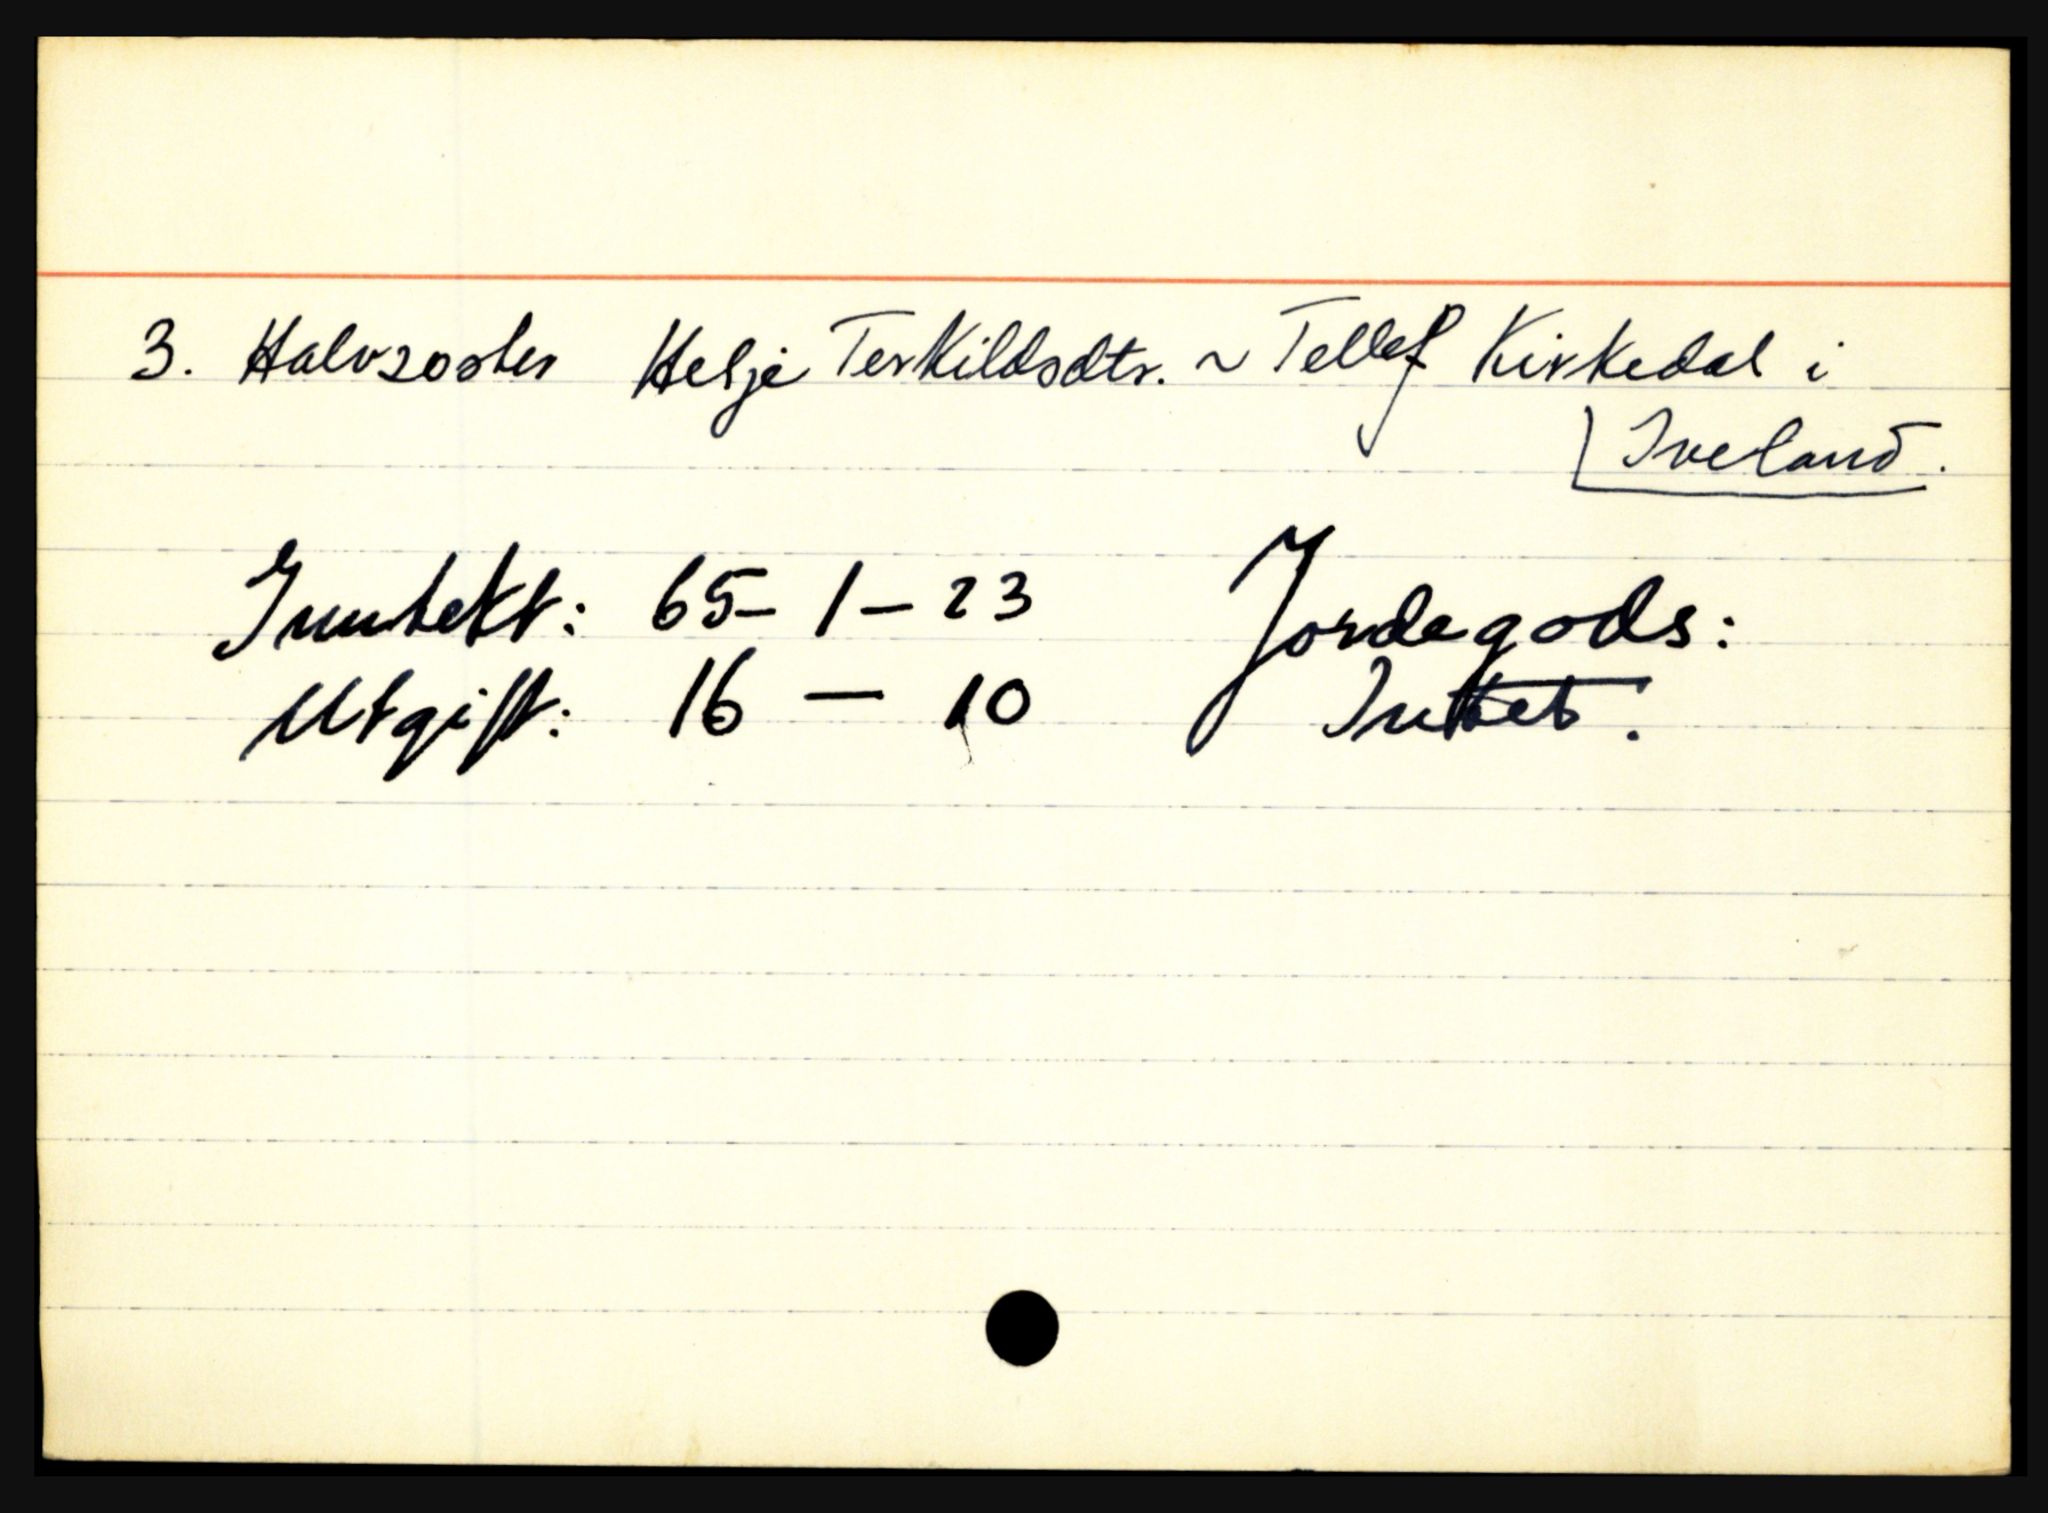 3. Halvsøster Helje Terkildsdtr. ~ Tellef Kirkedal i
Iveland.
Inntekt: 65 - 1 - 23 Jordegods:
Utgift: 16 - 10 Intet.